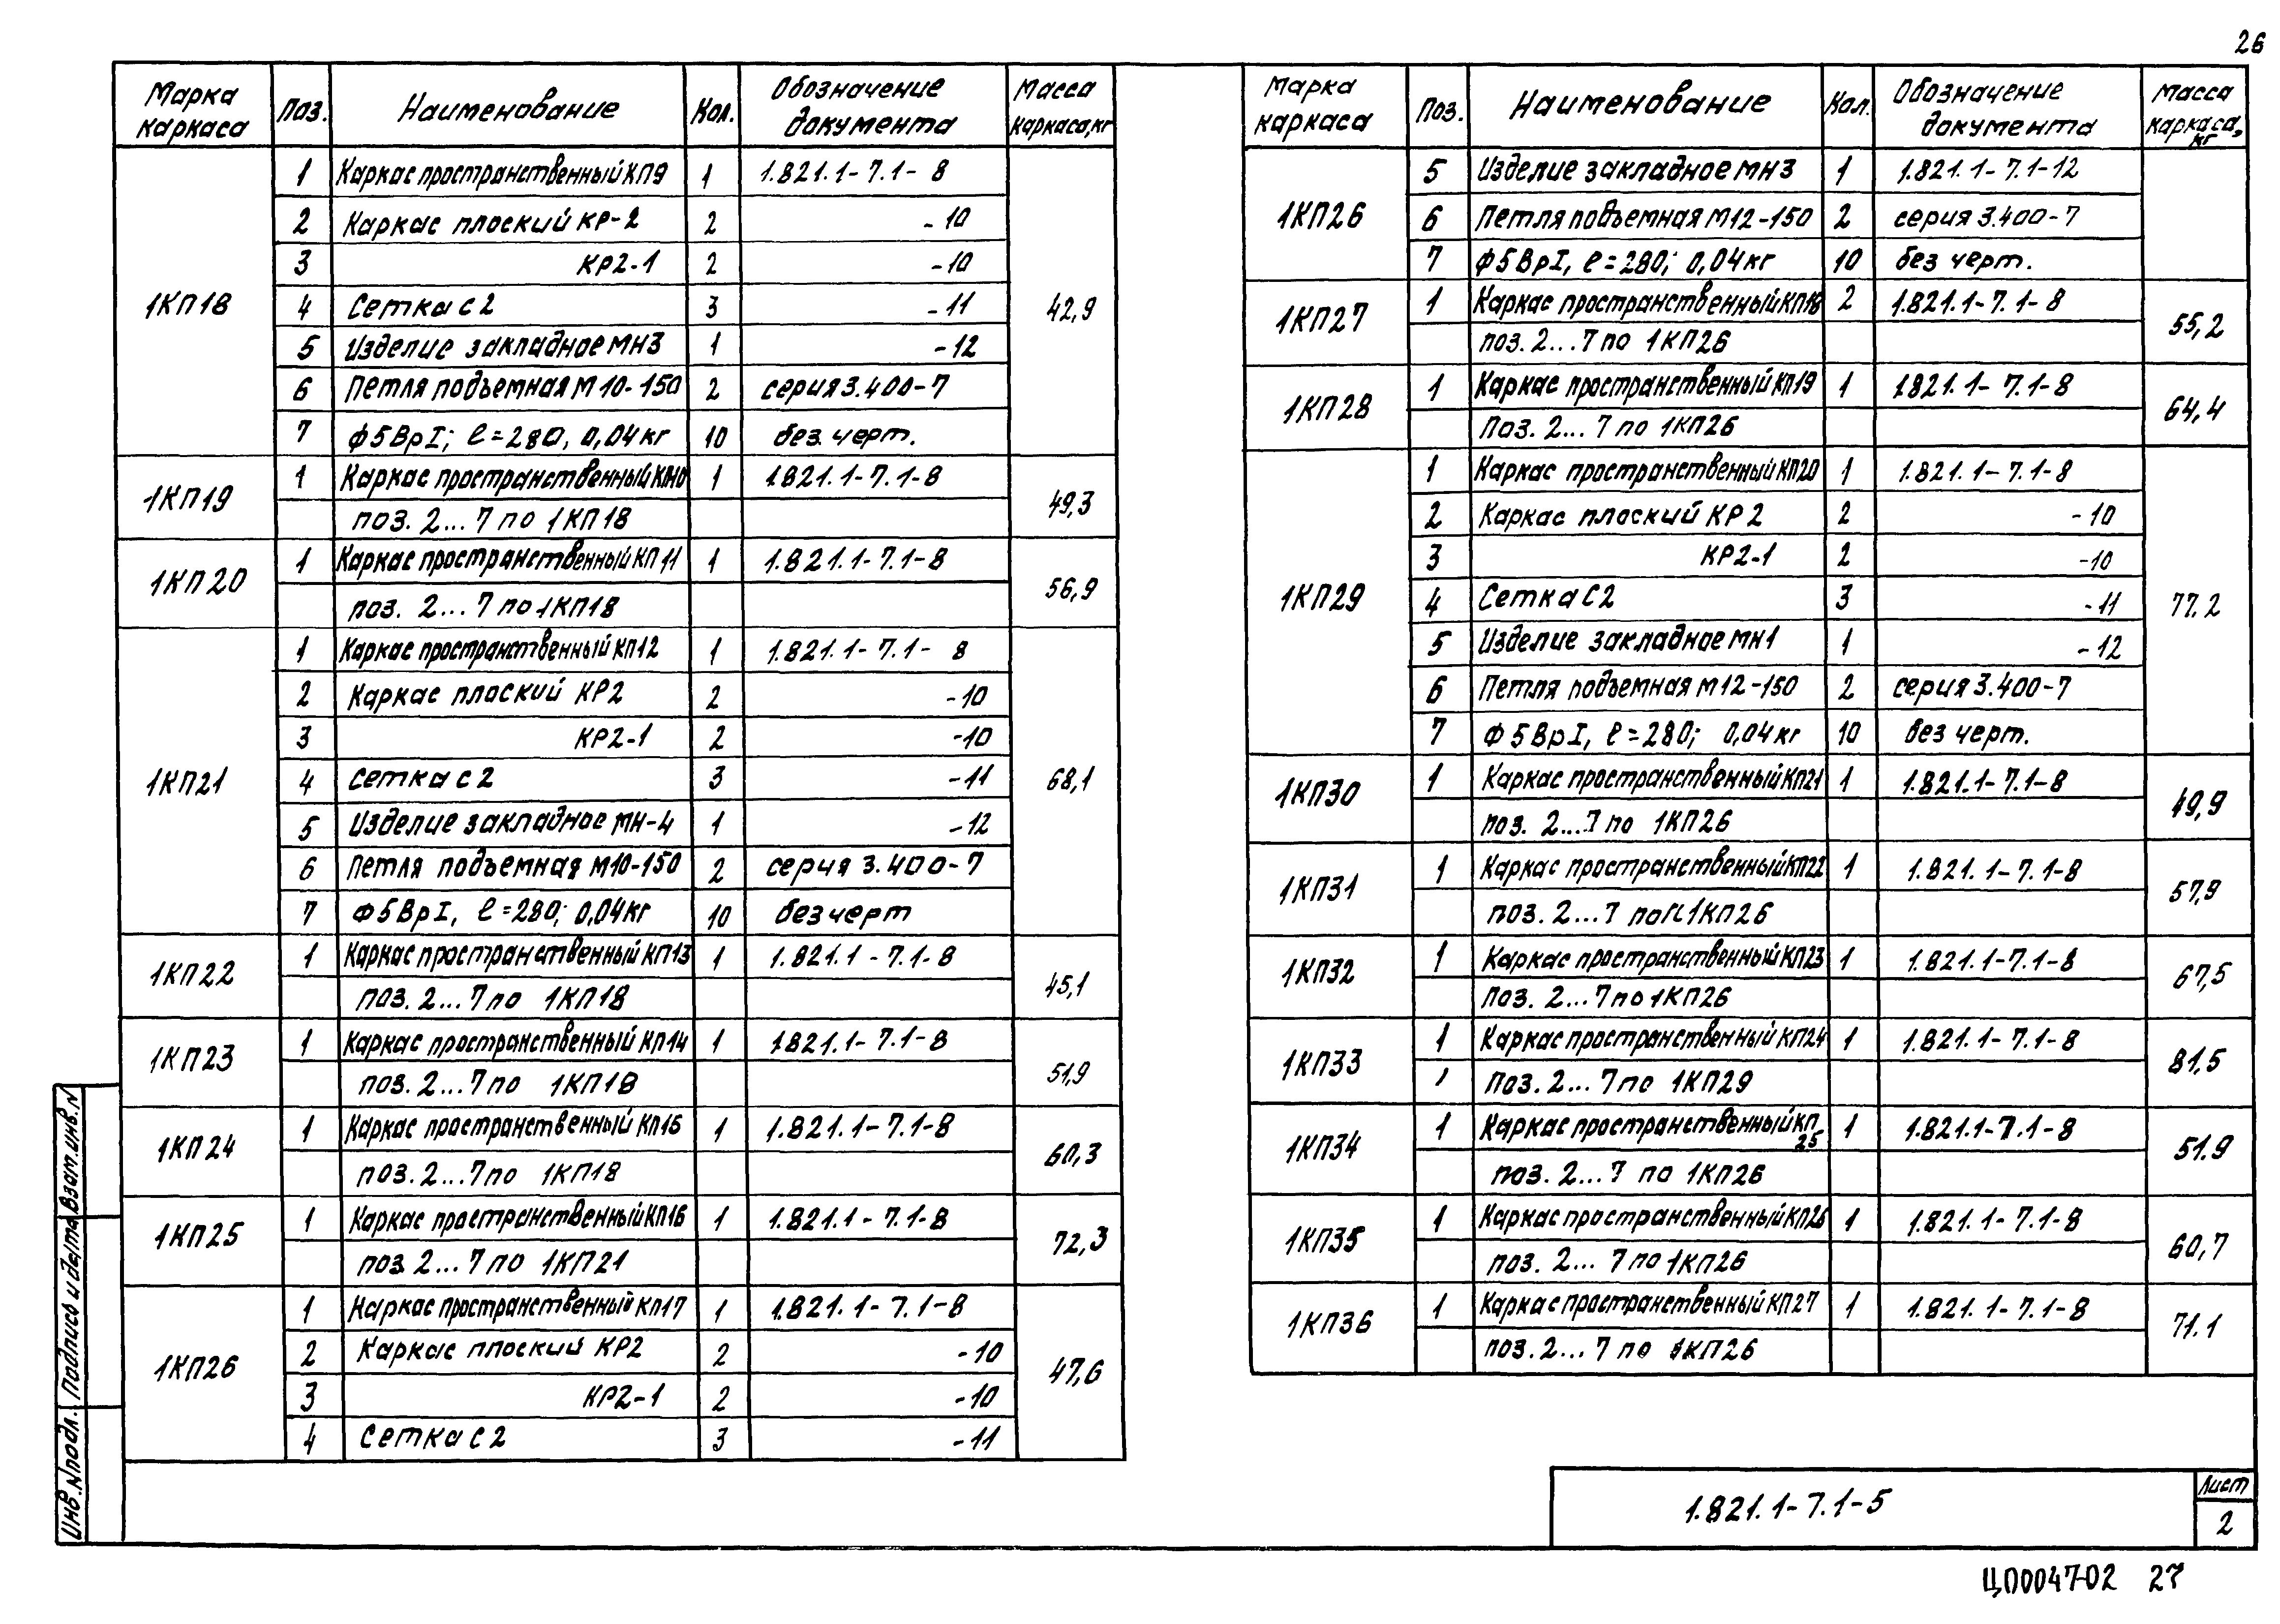 26
Марка каркаса Поз. Наименование Кол. Обозначение документа Масса каркаса, кг
1КП18 42,9
1 Каркас пространственный КП9 1 1.821.1-7.1-8
2 Каркас плоский КР-2 2 -10
3 КР2-1 2 -10
4 Сетка С2 3 -11
5 Изделие закладное МН3 1 -12
6 Петля подъемная М10-150 2 серия 3.400-7
7 Ф5ВрI; ℓ=280, 0,04кг 10 без черт.
1КП19 49,3
1 Каркас пространственный КП10 1 1.821.1-7.1-8
поз. 2...7 по 1КП18
1КП20 56,9
1 Каркас пространственный КП11 1 1.821.1-7.1-8
поз. 2...7 по 1КП18
1КП21 68,1
1 Каркас пространственный КП12 1 1.821.1-7.1-8
2 Каркас плоский КР2 2 -10
3 КР2-1 2 -10
4 Сетка С2 3 -11
5 Изделие закладное МН-4 1 -12
6 Петля подъемная М10-150 2 серия 3.400-7
7 Ф5ВрI, ℓ=280; 0,04кг 10 без черт
1КП22 45,1
1 Каркас пространственный КП13 1 1.821.1-7.1-8
поз. 2...7 по 1КП18
1КП23 51,9
1 Каркас пространственный КП14 1 1821.1-7.1-8
поз. 2...7 по 1КП18
1КП24 60,3
1 Каркас пространственный КП15 1 1.821.1-7.1-8
поз. 2...7 по 1КП18
1КП25 72,3
1 Каркас пространственный КП16 1 1.821.1-7.1-8
поз 2...7 по 1КП21
1КП26 47,6
1 Каркас пространственный КП17 1 1.821.1-7.1-8
2 Каркас плоский КР2 2 -10
3 КР2-1 2 -10
4 Сетка С2 3 -11
Марка каркаса Поз. Наименование Кол. Обозначение документа Масса каркаса, кг
1КП26
5 Изделие закладное МН3 1 1.821.1-7.1-12
6 Петля подъемная М12-150 2 серия 3.400-7
7 Ф5ВрI, ℓ=280; 0,04кг 10 без черт.
1КП27 55,2
1 Каркас пространственный КП18 2 1.821.1-7.1-8
поз. 2...7 по 1КП26
1КП28 64,4
1 Каркас пространственный КП19 1 1821.1-7.1-8
Поз. 2...7 по 1КП26
1КП29 77.2
1 Каркас пространственный КП20 1 1.821.1-7.1-8
2 Каркас плоский КР2 2 -10
3 КР2-1 2 -10
4 Сетка С2 3 -11
5 Изделие закладное МН1 1 -12
6 Петля подъемная М12-150 2 серия 3.400-7
7 Ф5ВрI, ℓ=280; 0,04кг 10 без черт.
1КП30 49,9
1 Каркас пространственный КП21 1 1.821.1-7.1-8
поз. 2...7 по 1КП26
1КП31 57,9
1 Каркас пространственный КП22 1 1.821.1-7.1-8
поз. 2...7 по 1КП26
1КП32 67,5
1 Каркас пространственный КП23 1 1.821.1-7.1-8
поз. 2...7 по 1КП26
1КП33 81,5
1 Каркас пространственный КП24 1 1.821.1-7.1-8
поз. 2...7 по 1КП29
1КП34 51.9
1 Каркас пространственный КП 25 1 1.821.1-7.1-8
поз. 2...7 по 1КП26
1КП35 60,7
1 Каркас пространственный КП26 1 1.821.1-7.1-8
поз. 2...7 по 1КП26
1КП36 71.1
1 Каркас пространственный КП27 1 1.821.1-7.1-8
поз. 2...7 по 1КП26
Инв. N подл. Подпись и дата Взам. инв. N
1.821.1-7.1-5
Лист
2
ЦП0047-02 27